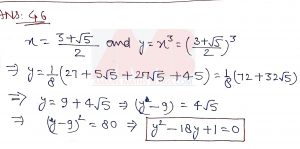 ANS: 46
x = (3+√5)/2 and y = x³ = ((3+√5)/2)³
⇒ y = 1/8 (27 + 5√5 + 27√5 + 45) = 1/8 (72 + 32√5)
⇒ y = 9 + 4√5 ⇒ (y - 9) = 4√5
⇒ (y - 9)² = 80 ⇒ y² - 18y + 1 = 0